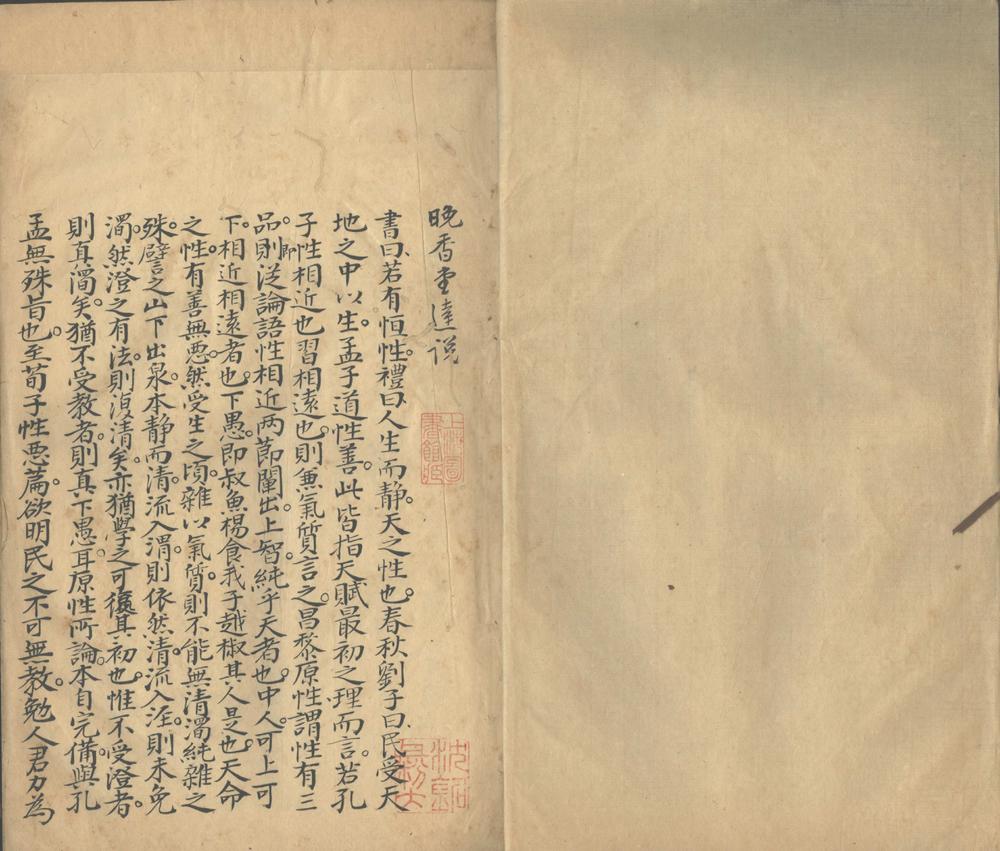 晚香堂達说
書曰若有恒性禮曰人生而静天之性也春秋劉子曰民受天
地之中以生孟子道性善此皆指天賦最初之理而言若孔
子性相近也習相遠也則兼氣質言之昌黎原性謂性有三
品則即從論語性相近两節闡出上智純乎天者也中人可上可
下相近相遠者也下愚即叔魚楊食我子越椒其人是也天命
之性有善無惡然受生之頃雜以氣質則不能無清濁純雜之
殊譬之山下出泉本静而清流入渭則依然清流入涇則未免
濁然澄之有法則復清矣亦猶學之可復其初也惟不受澄者
則真濁矣猶不受教者則真下愚耳原性所論本自完備與孔
孟無殊旨也至荀子性惡篇欲明民之不可無教勉人君力為